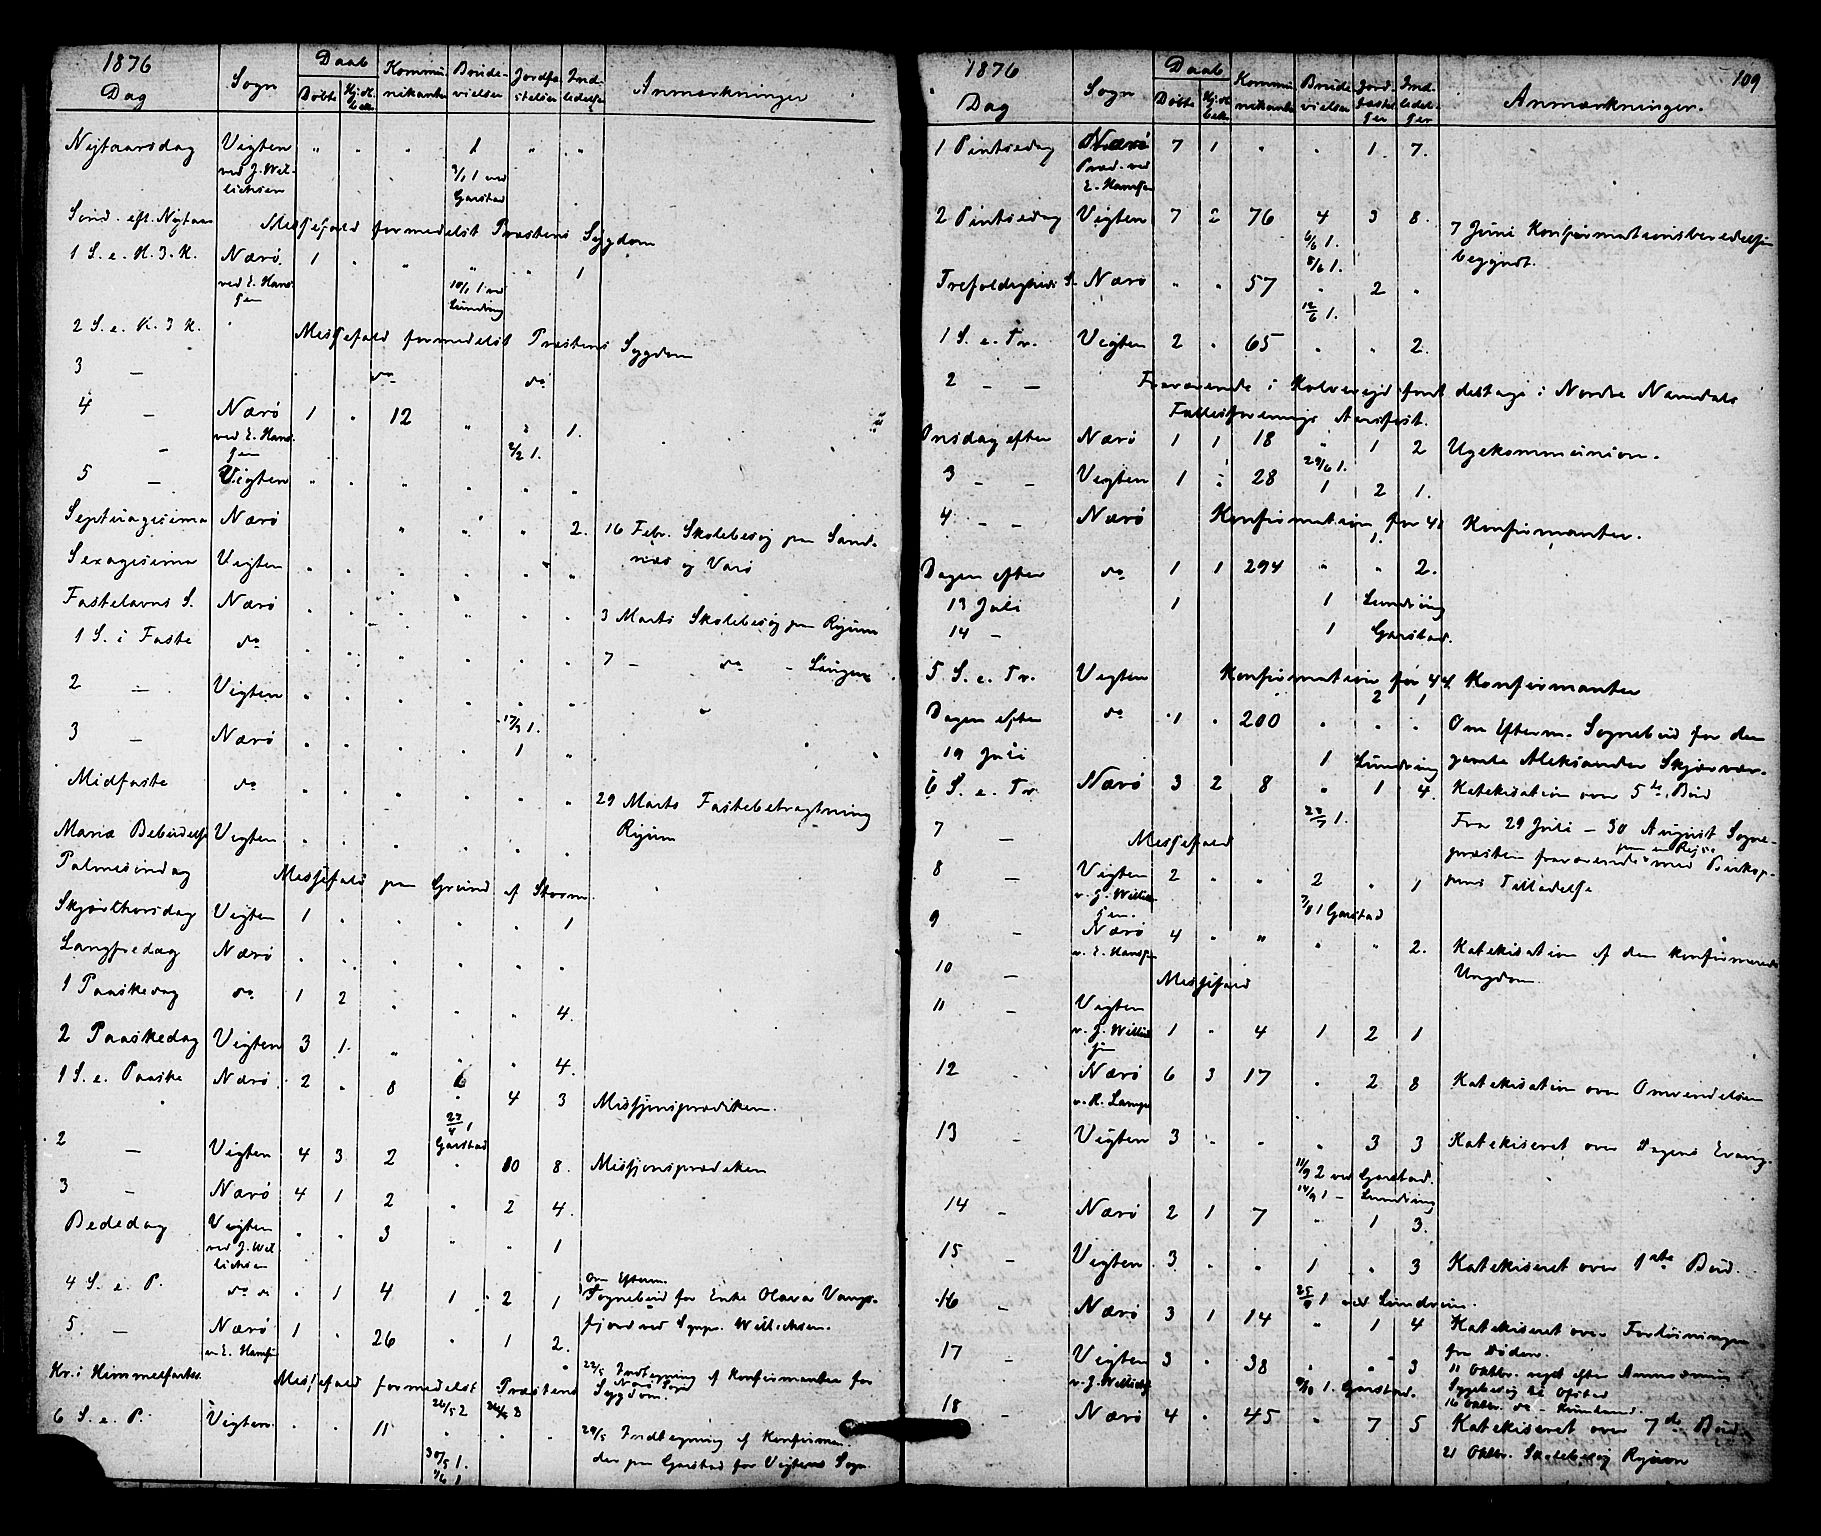 1876
Dag Sogn Daab Kommu- Brude- Jordfæ- Ind-
Døbte Hj.dt. nikanter vielser stelser ledelser Anmærkninger
Nytaarsdag Vigten " " " 1 " "
ved J. Wil- 3/1 1 ved
lichsen Garstad
Sønd. eft. Nytaar Messefald formedelst Præstens Sygdom
1 S. e. H. 3 K. Nærø 1 " " " " 1
ved E. Han- 10/1 1 ved
sen Lundring
2 S. e. H. 3 K. Messefald formedelst Præstens Sygdom
3 — do do
4 — Nærø 1 " 12 " " 1.
ved E. Han-
sen 2/2 1.
5 — Vigten " " " " " "
Septuagesima Nærø " " " 2. 16 Febr. Skolebesøg paa Sand-
næs og Varø
Sexagesima Vigten " " " " " "
Fastelavns S. Nærø " " " " " " 3 Marts Skolebesøg paa Ryum
1 S. i Faste do " " " " " " 7 — do —
2 — Vigten " " " " " "
17/3 1.
3 — Nærø " " " " 1 "
Midfaste do " " " " " " 29 Marts Fastebetragtning
Ryum
Mariæ Bebudelse Vigten " " " " " "
Palmesøndag Messefald paa Grund af Storm
Skjærthorsdag Vigten 1 " " " " 1
Langfredag Nærø " " " " " "
1 Paaskedag do 1 2 " " " 4.
2 Paaskedag Vigten 3 1 " " " 4.
1 S. e. Paaske Nærø 2 " 8 " 4 3 Missjonsprædiken.
23/4 1
Garstad
2 — Vigten 4 3 2 " 10 8. Missjonsprædiken
3 — Nærø 4 1 2 " 2 4.
Bededag Vigten " " 3 " " 1
ved J. Wil-
lichsen
om Efterm.
4 S. e. P. do do " 1 4 1 2 1 Sognebud for Enke Olava
fjord ved Sgnpr. Willichsen.
5 — Nærø 1 " 26 " 1 2.
v. E. Hansen
22/5 Indtegning af Konfirmanter for
Kr. i Himmelfartsd. Messefald formedelst Præstens Sygdom. Nærø Sogn
26/5 2
6 S. e. P. Vigten " " 11 " " " 29/5 Indtegning af Konfirman-
30/5 1. der paa Garstad for Vigtens Sogn
7/6 1
109
1876
Dag Sogn Daab Kommu- Brude- Jord- Ind-
Døbte Hj.dt. nikanter vielser fæstel- ledel- Anmærkninger.
ser ser
1 Pintsedag Nærø 7 1 " " 1. 7.
Præd. ved
E. Hansen
2 Pintsedag Vigten 7 2 76 4 3 8. 7 Juni Konfirmationsberedelsen
6/6 1. begyndt.
8/6 1.
Trefoldigheds S. Nærø " " 57 " 2 "
12/6 1.
1 S. e. Tr. Vigten 2 " 65 " " 2.
2 — — Fraværende i Kolvereid for at deltage i Nordre Namdals
Fællesforenings Aarsfest.
Onsdag efter Nærø 1 1 18 " 1 2 Ugekommunion.
29/6 1.
3 — — Vigten 1 " 28 1 2 1.
4 — — Nærø Konfirmation for 41 Konfirmanter.
1.
Dagen efter do 1 1 294 " " 2.
13 Juli 1 1 Lundring
14 — 1 Garstad.
5 S. e. Tr. Vigten Konfirmation for 44 Konfirmanter
2 1
Dagen efter do 1 " 200 " " " Om Efterm. Sognebud for den
19 Juli 1 Lundring gamle Aleksander Skjærvær.
6 S. e. Tr Nærø 3 2 8 " 1 4. Katekisation over 5te Bud
23/7 1.
7 — Messefald Fra 29 Juli — 30 August Sogne-
præsten fraværende paa en Rejse med Biskop-
8 — Vigten 2 " " 2 " 1 pens Tilladelse
v. J. Willich- 7/8 1 Garstad
sen.
9 — Nærø 4 " " " " 2. Katekisation af den konfirmerede
v. E. Hansen Ungdom.
10 — Messefald
11 — Vigten
v. J. Willich- 1 " 4 1 2 1
sen
12 — Nærø 6 3 17 " 2 8 Katekisation over Omvendelsen
13 — Vigten 3 " " " 3 3 Katekiseret over Dagens Evang.
11/9 2 ved Garstad.
14/9 1 — Lundring
14 — Nærø 2 1 7 " 1 3.
15 — Vigten 3 " " 1 " 3 Katekiseret over 1ste Bud.
25/9 1 ved Lundring.
16 — Nærø 3 1 14 " 1 4 Katekiseret over Forløsningen
fra Døden.
17 — Vigten 3 " 38 " " 3 11 Oktbr. reist efter Anmodning i
v. J. Willichsen 9/10 1. Garstad. Sygebesøg til Ofstad
16 Oktbr. do —
18 — Nærø 4 " 45 " 7 5 Katekiseret over 7de Bud.
21 Oktbr. Skolebesøg Ryum